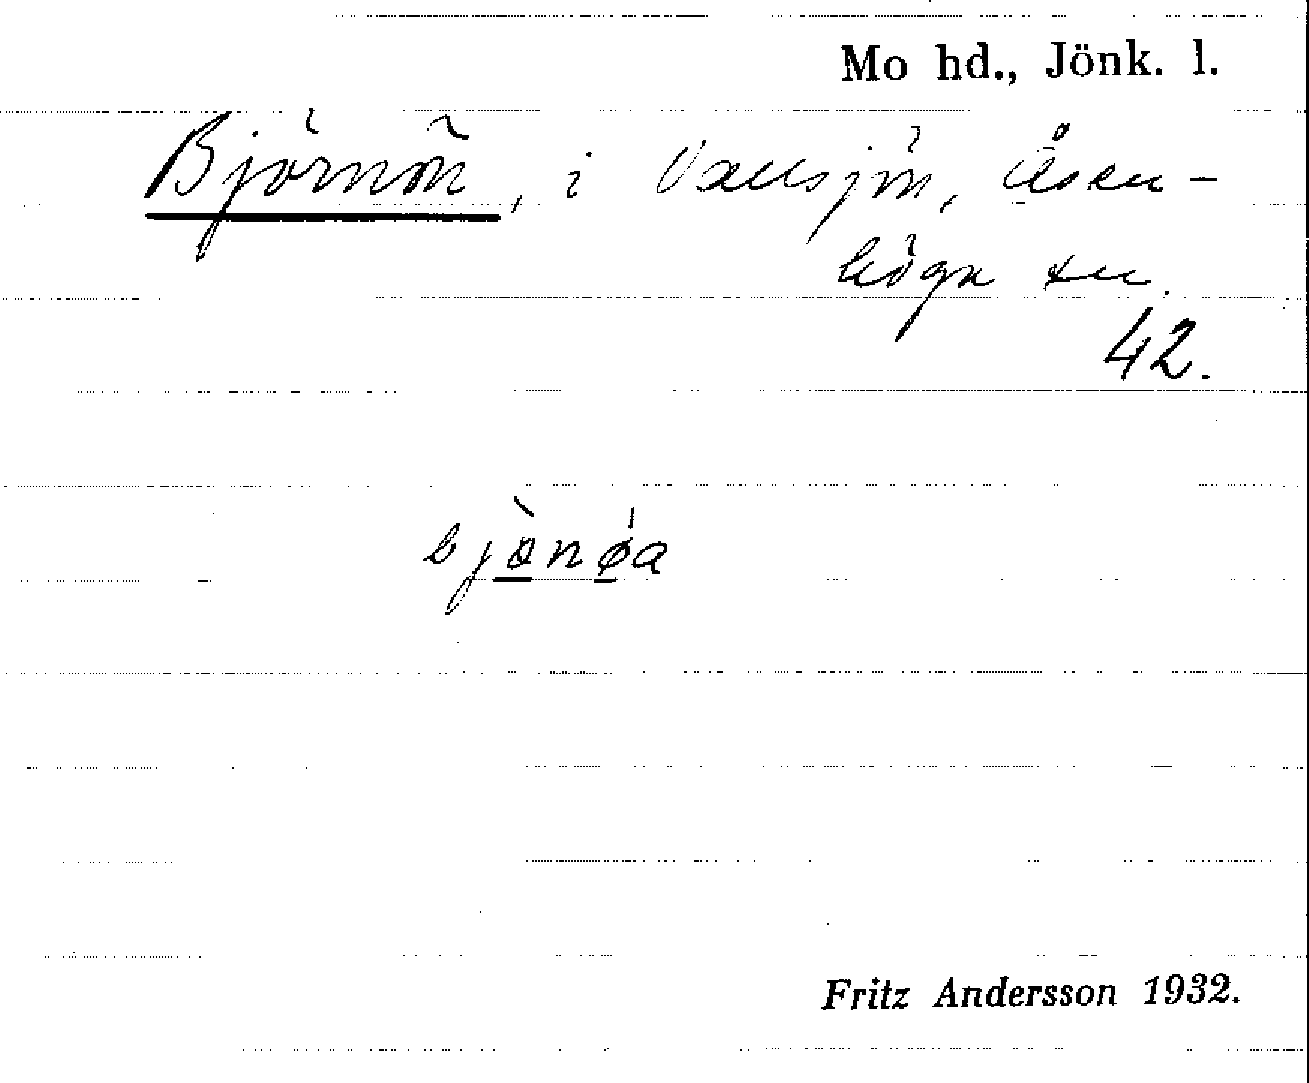 Mo hd., Jönk. l.
Björnön, i Vallsjön, Åsen-
höga sn.
42.
bjönøa
Fritz Andersson 1932.